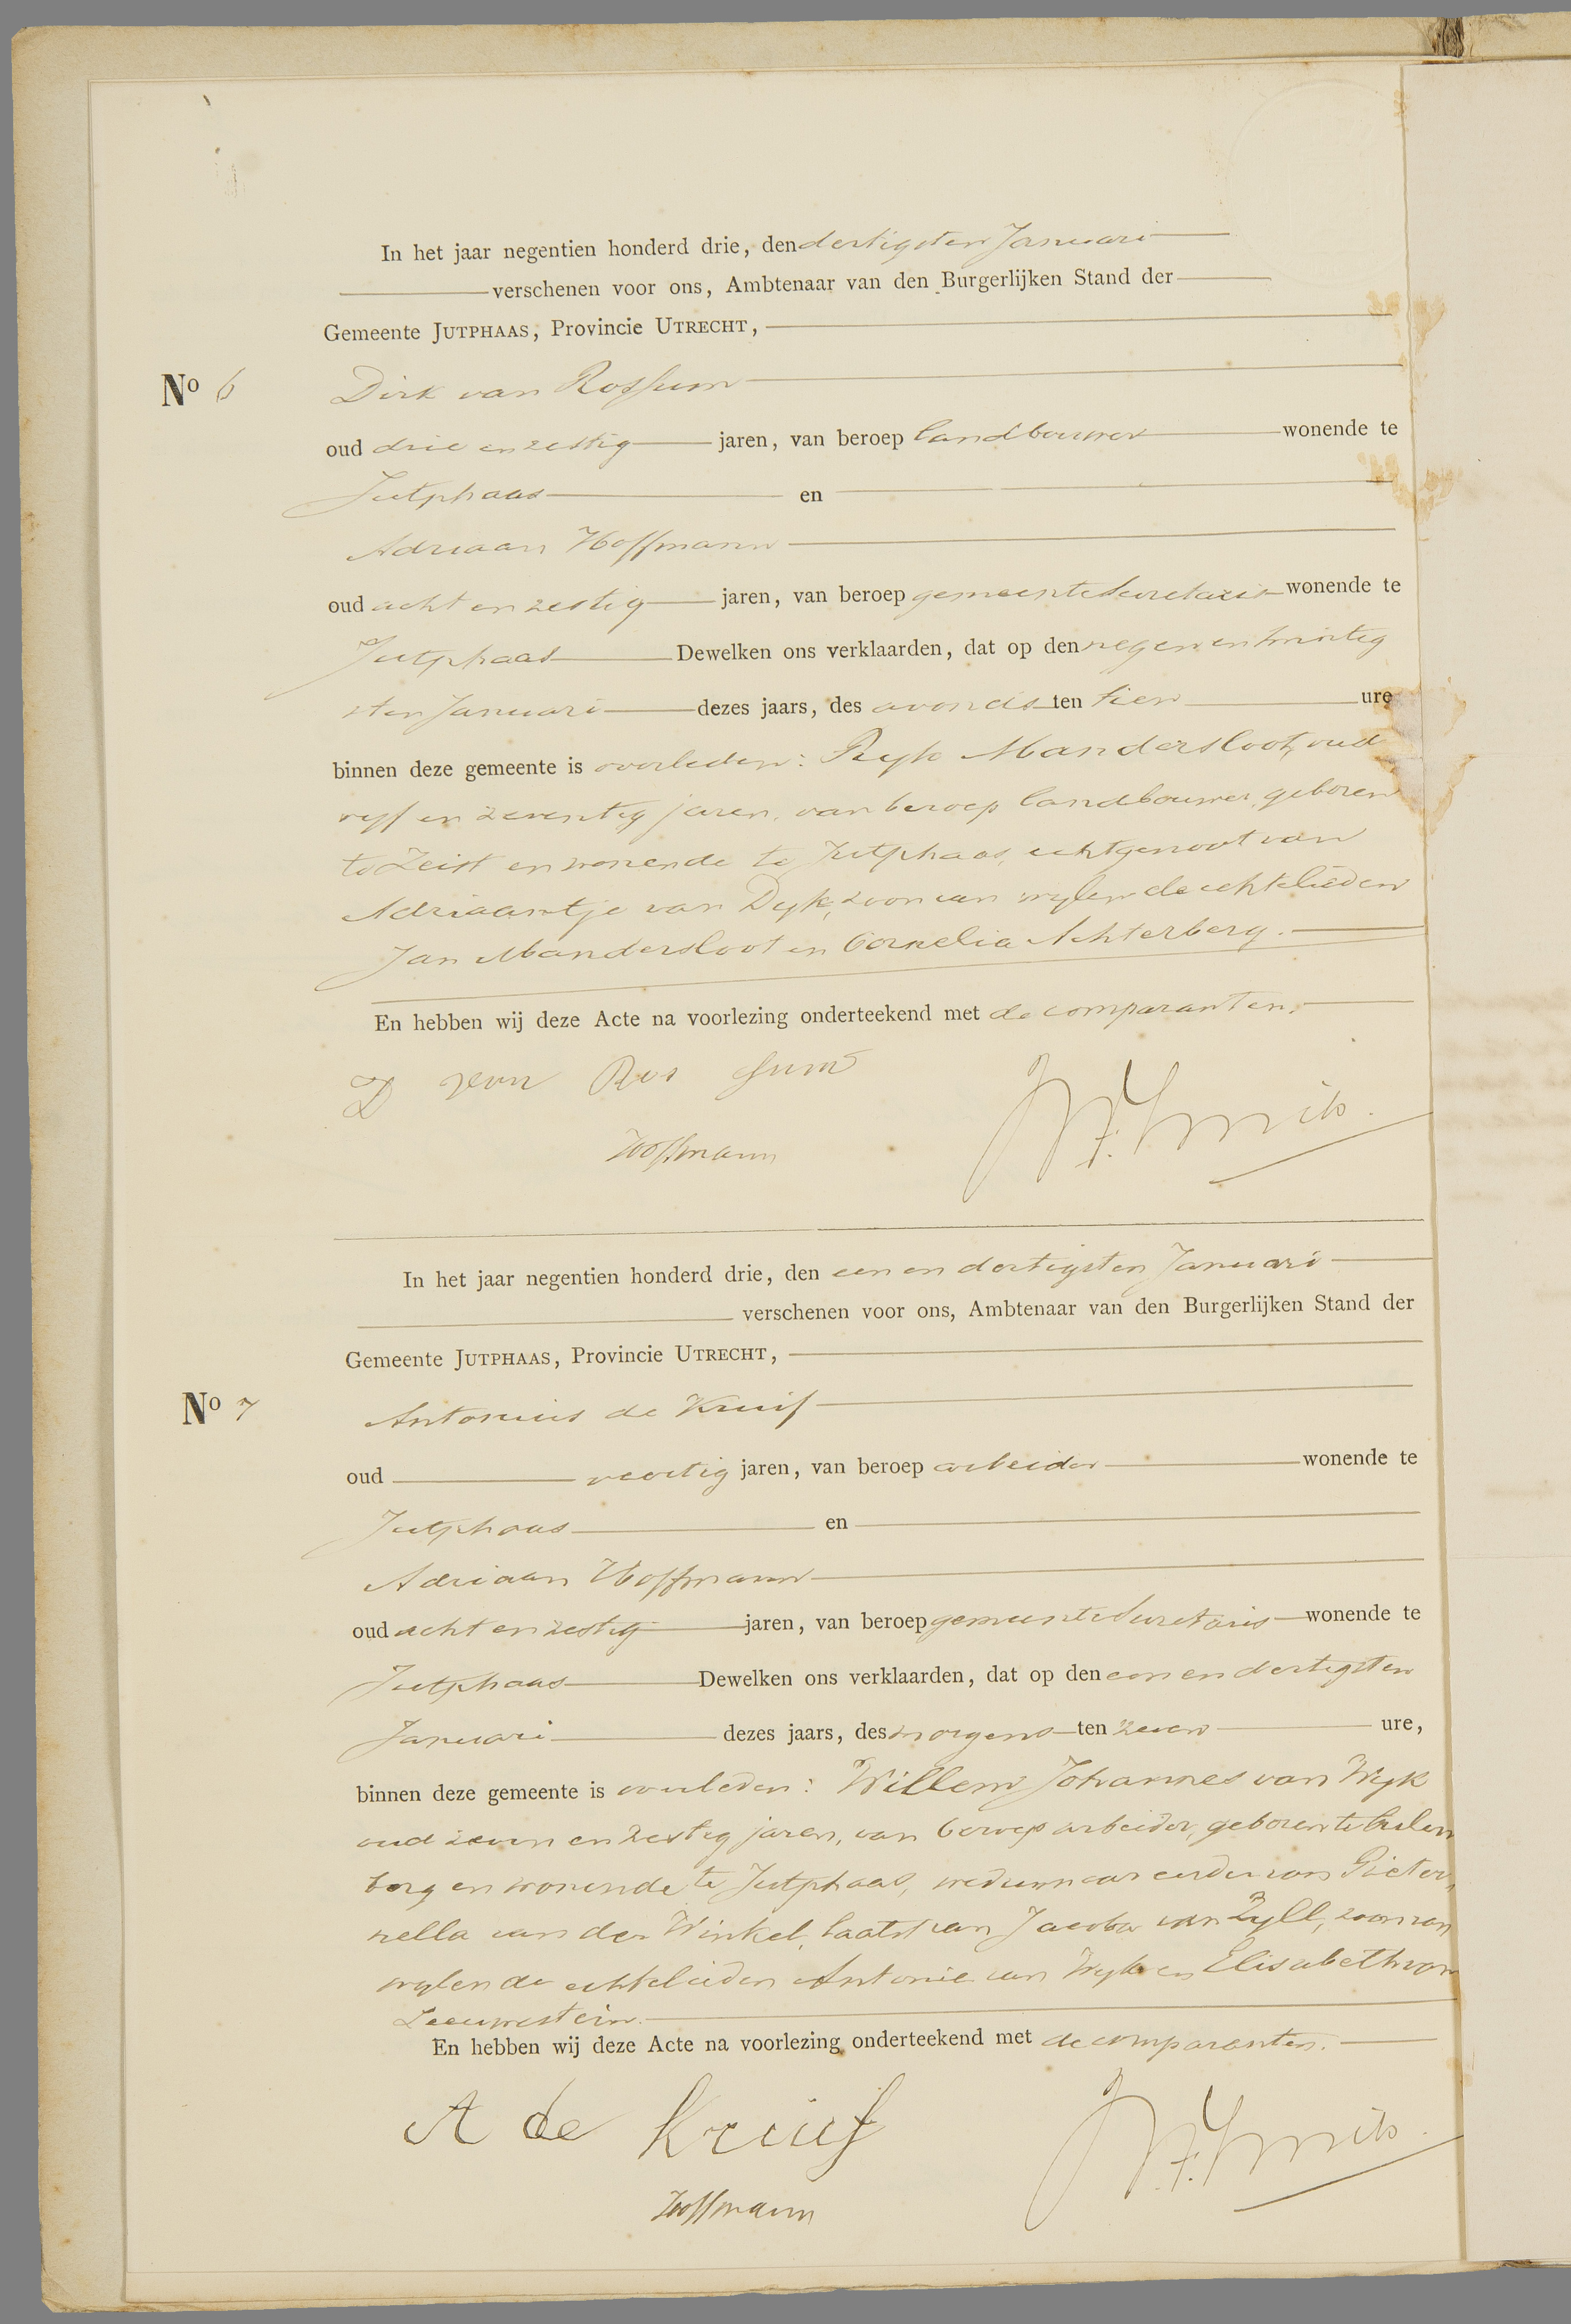 In het jaar negentien honderd drie, den dertigsten Januari
verschenen voor ons, Ambtenaar van den Burgerlijken Stand der
Gemeente JUTPHAAS, Provincie UTRECHT,
No 6 Dirk van Rossum
oud drie en zestig jaren, van beroep landbouwer wonende te
Jutphaas en
Adriaan Hoffmann
oud acht en zestig jaren, van beroep gemeentesecretaris wonende te
Jutphaas Dewelken ons verklaarden, dat op den negen en twintig
sten Januari dezes jaars, des avonds ten tien ure
binnen deze gemeente is overleden: Ryk Mandersloot, oud
vyf en zeventig jaren, van beroep landbouwer, geboren
te Zeist en wonende te Jutphaas, echtgenoot van
Adriaantje van Dyk, zoon van wylen de echtelieden
Jan Mandersloot en Cornelia Achterberg.
En hebben wij deze Acte na voorlezing onderteekend met de comparanten.
D van Ros sum
Hoffmann
In het jaar negentien honderd drie, den een en dertigsten Januari
verschenen voor ons, Ambtenaar van den Burgerlijken Stand der
Gemeente JUTPHAAS, Provincie UTRECHT,
No 7 Antonius de Kruif
oud veertig jaren, van beroep arbeider wonende te
Jutphaas en
Adriaan Hoffmann
oud acht en zestig jaren, van beroep gemeentesecretaris wonende te
Jutphaas Dewelken ons verklaarden, dat op den een en dertigsten
Januari dezes jaars, des morgens ten zeven ure,
binnen deze gemeente is overleden: Willem Johannes van Wyk
oud zeven en zestig jaren, van beroep arbeider, geboren te Culen
borg en wonende te Jutphaas, weduwnaar eerder van Pieter,
nella van der Winkel, laatst van Jacoba van Zyll, zoon van
wylen de echtelieden Antonie van Wyk en Elisabeth van
Leeuwestein.
En hebben wij deze Acte na voorlezing onderteekend met de comparanten.
A de Kruif
Hoffmann